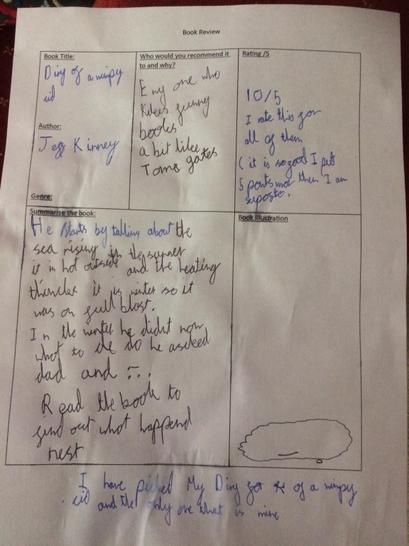 Book Review
Book Title:
Diry of a wimpy
cid
Author:
Jeff Kinney
Genre:
Who would you recommend it
to and why?
Eny one who
likes funny
books
a bit like
Tome gates
Rating /5
10/5
I rate this for
all of them
( it is so good I puts
5 ponts mor then I am
suposto.
Summarise the book:
He starts by talking about the
sea rising in the summer
it is hot outside and the heating
thincks it is winter so it
was on full blast.
In the winter he didnt now
what to do he ascked
dad and :..
Read the book to
find out what happend
nest
Book Illustration
I have picked My Diry of a wimpy
cid and the only one that is mine